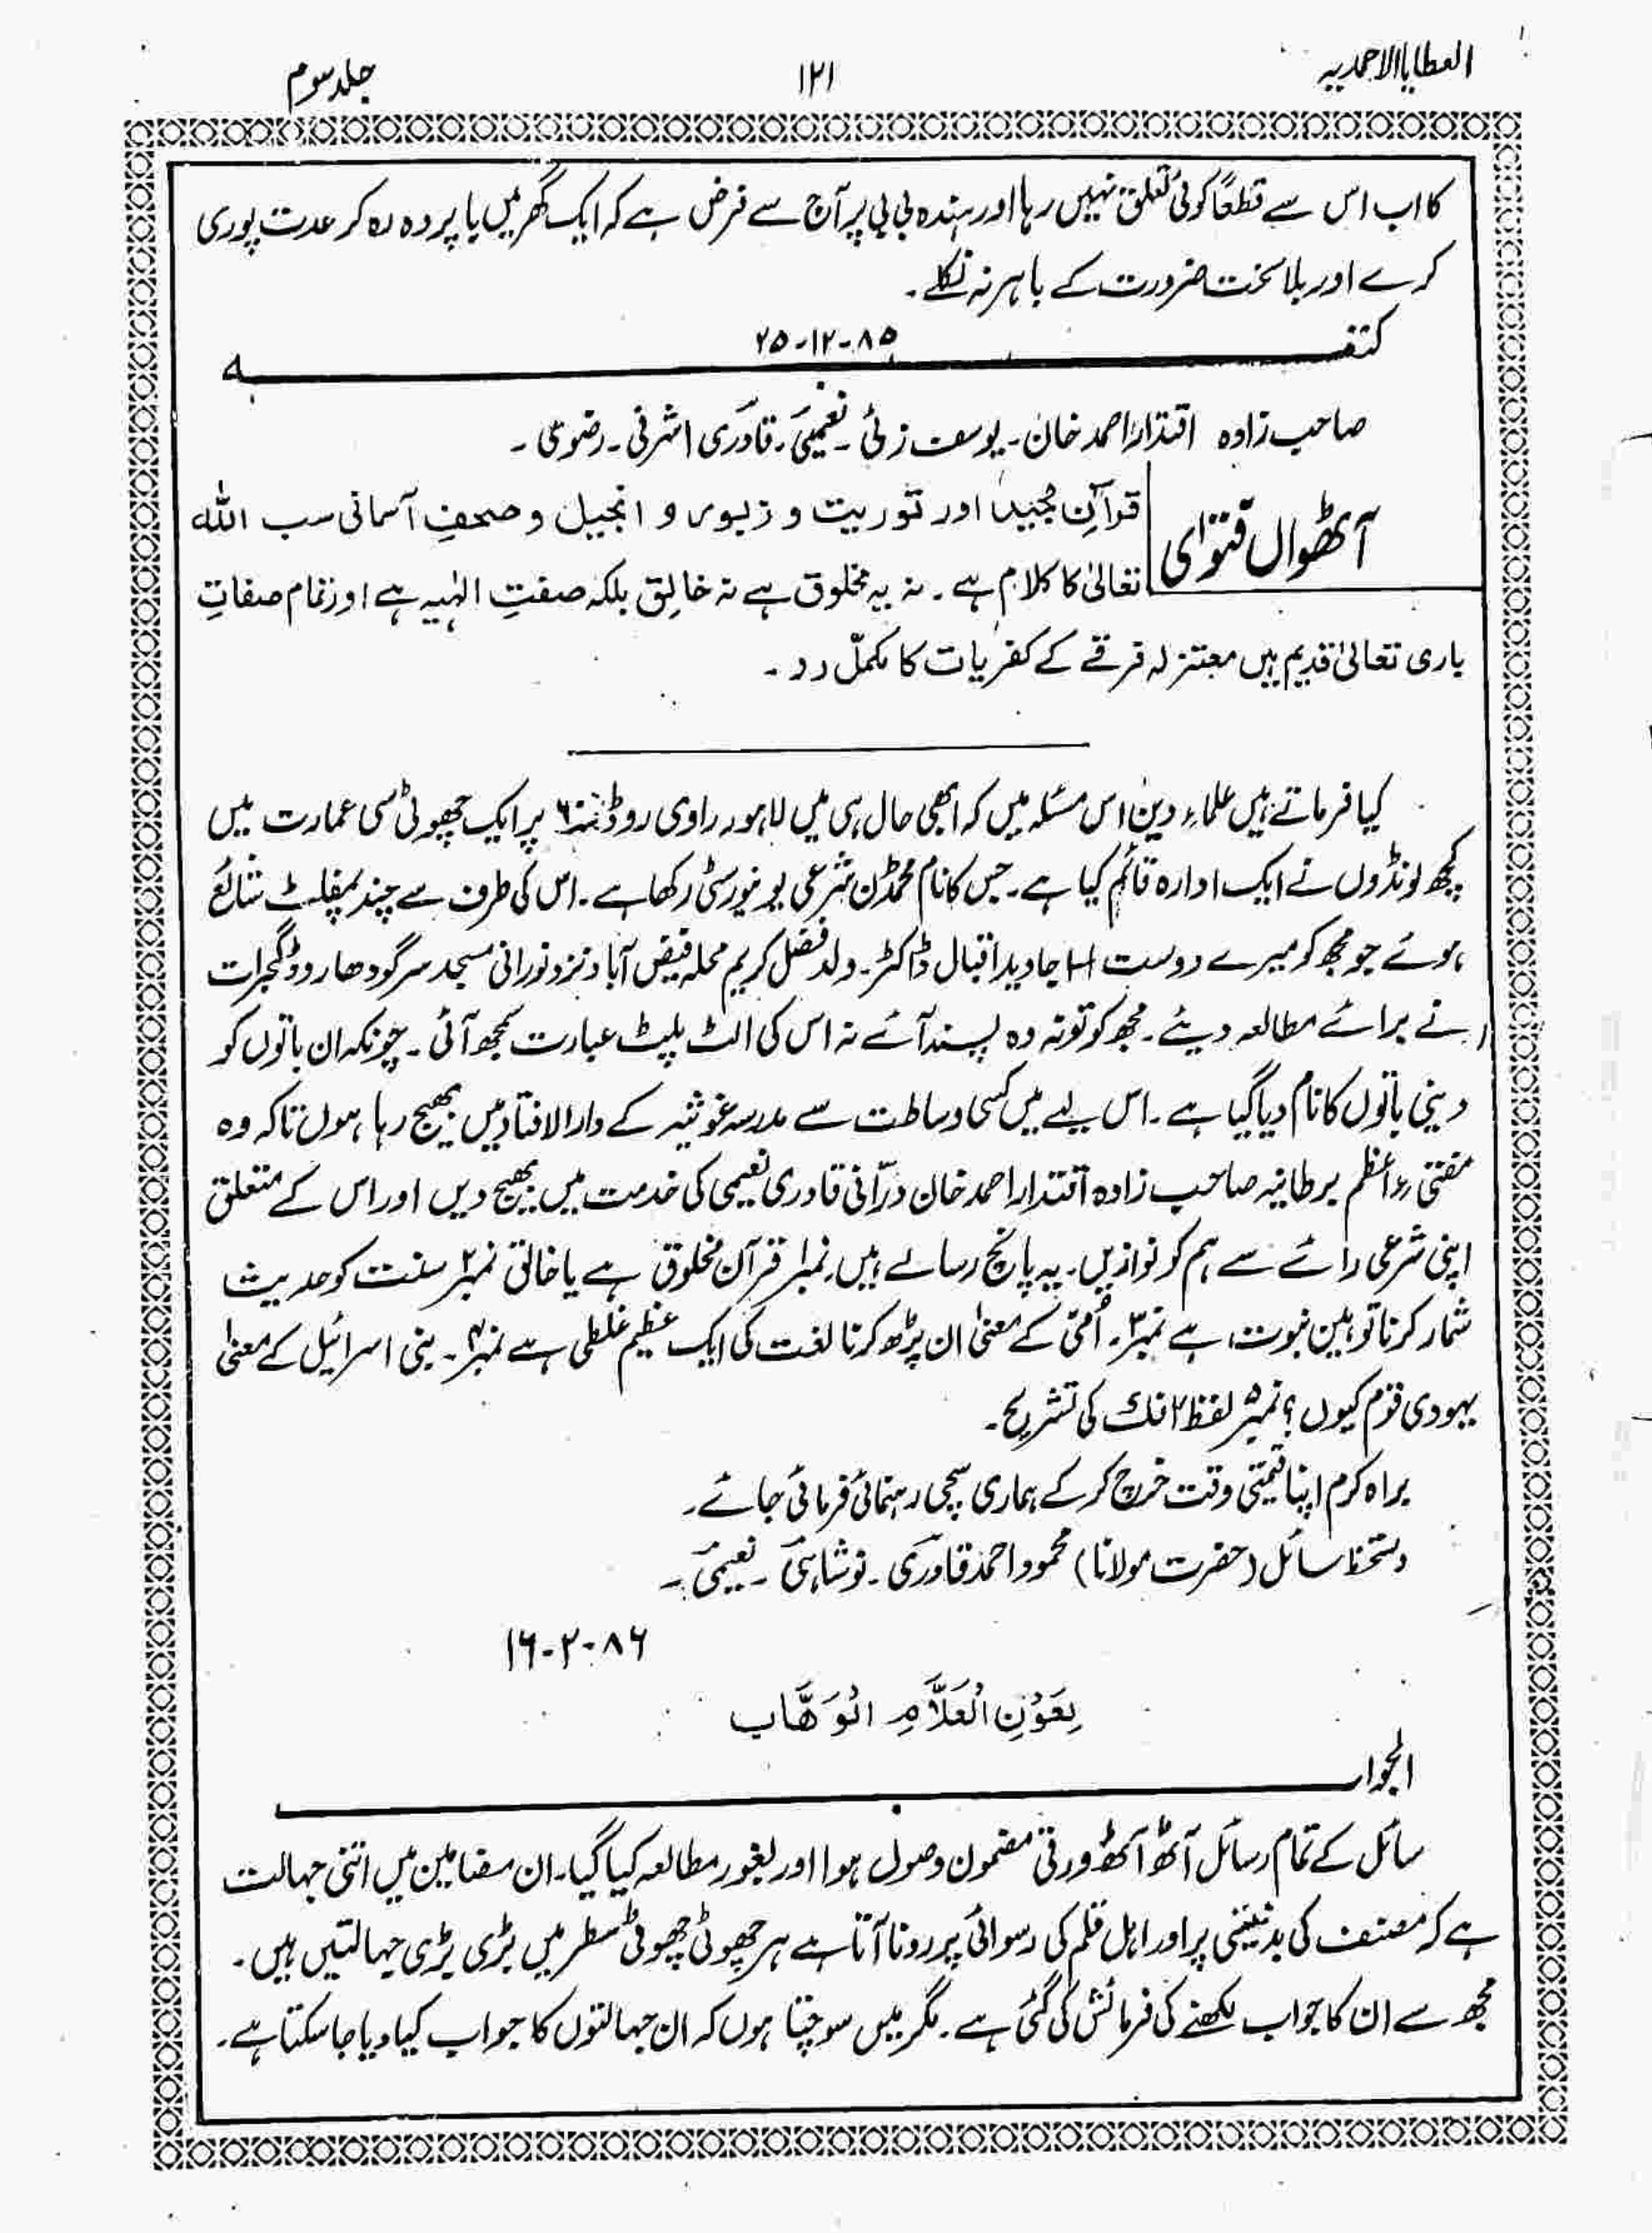 العطایاالاحمدیہ ۱۲۱ جلد سوم
کا اب اس سے قطعًا کوئی تعلق نہیں رہا اور ہندہ بی بی پر آج سے فرض ہے کہ ایک گھر میں با پردہ رہ کر عدت پوری
کرے اور بلا سخت ضرورت کے باہر نہ نکلے۔
۲۵-۱۲-۸۵
صاحب زادہ اقتدار احمد خان۔ یوسف زئی۔ نعیمی۔ قادری اشرفی۔ رضوی۔
آٹھواں فتوٰی
قرآنِ مجید اور توریت و زبور و انجیل و صحفِ آسمانی سب اللہ
تعالیٰ کا کلام ہے۔ نہ یہ مخلوق ہے نہ خالِق بلکہ صفتِ الٰہیہ ہے اور تمام صفاتِ
باری تعالیٰ قدیم ہیں معتزلہ فرقے کے کفریات کا مکمّل رد۔
کیا فرماتے ہیں علماءِ دین اس مسئلہ میں کہ ابھی حال ہی میں لاہور راوی روڈ نمبر ۶ پر ایک چھوٹی سی عمارت میں
کچھ لونڈوں نے ایک ادارہ قائم کیا ہے۔ جس کا نام محمڈن شرعی یونیورسٹی رکھا ہے۔ اس کی طرف سے چند پمفلٹ شائع
ہوئے جو مجھ کو میرے دوست جاوید اقبال ڈاکٹر۔ ولد فضل کریم محلہ فیض آباد نزد نورانی مسجد سرگودھا روڈ گجرات
نے برائے مطالعہ دیئے۔ مجھ کو تو نہ وہ پسند آئے نہ اس کی الٹ پلیٹ عبارت سمجھ آئی۔ چونکہ ان باتوں کو
دینی باتوں کا نام دیا گیا ہے۔ اس لیے میں کسی وساطت سے مدرسہ غوثیہ کے دارالافتاء میں بھیج رہا ہوں تاکہ وہ
مفتیءِ اعظم برطانیہ صاحب زادہ اقتدار احمد خان درّانی قادری نعیمی کی خدمت میں بھیج دیں اور اس کے متعلق
اپنی شرعی رائے سے ہم کو نوازیں۔ یہ پانچ رسالے ہیں نمبر۱ قرآن مخلوق ہے یا خالق نمبر۲ سنت کو حدیث
شمار کرنا توہین نبوت ہے نمبر۳۔ اُمّی کے معنیٰ ان پڑھ کرنا لغت کی ایک عظیم غلطی ہے نمبر۴۔ بنی اسرائیل کے معنیٰ
یہودی قوم کیوں؟ نمبر۵ لفظ کی تشریح۔
براہ کرم اپنا قیمتی وقت خرچ کر کے ہماری سچی رہنمائی فرمائی جائے۔
دستخط سائل (حضرت مولانا) محمود احمد قادری۔ نوشاہی۔ نعیمی۔
۱۶-۲-۸۶
بِعَوْنِ الْعَلَّامِ الْوَهَّابِ
الجواب
سائل کے تمام رسائل آٹھ آٹھ ورقی مضمون وصول ہوا اور بغور مطالعہ کیا گیا۔ ان مضامین میں اتنی جہالت
ہے کہ مصنف کی بدنیتی پر اور اہل قلم کی رسوائی پر رونا آتا ہے ہر چھوٹی چھوٹی سطر میں بڑی بڑی جہالتیں ہیں۔
مجھ سے ان کا جواب لکھنے کی فرمائش کی گئی ہے۔ مگر میں سوچتا ہوں کہ ان جہالتوں کا جواب کیا دیا جا سکتا ہے۔